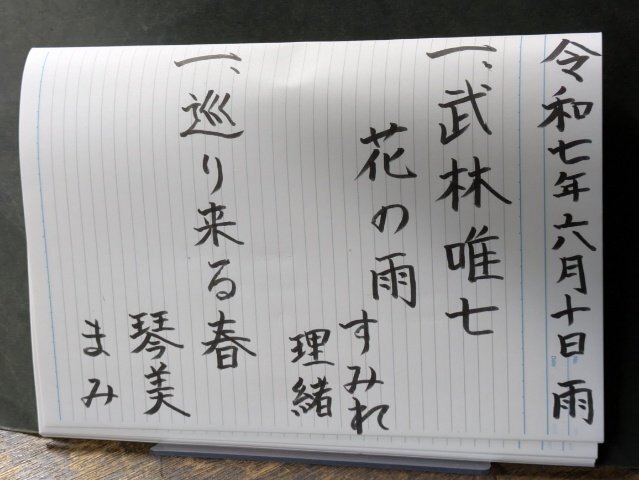 令和七年六月十日 雨
一、武林唯七
花の雨
すみれ
理緒
一、巡り来る春
琴美
まみ